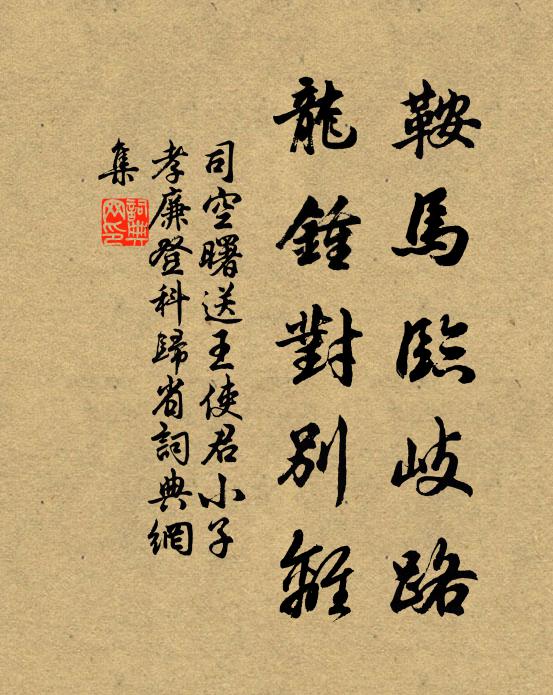 鞍馬臨岐路
龍鍾對別離
司空曙送王使君小子
孝廉登科歸省詞典網
集
詞典網印